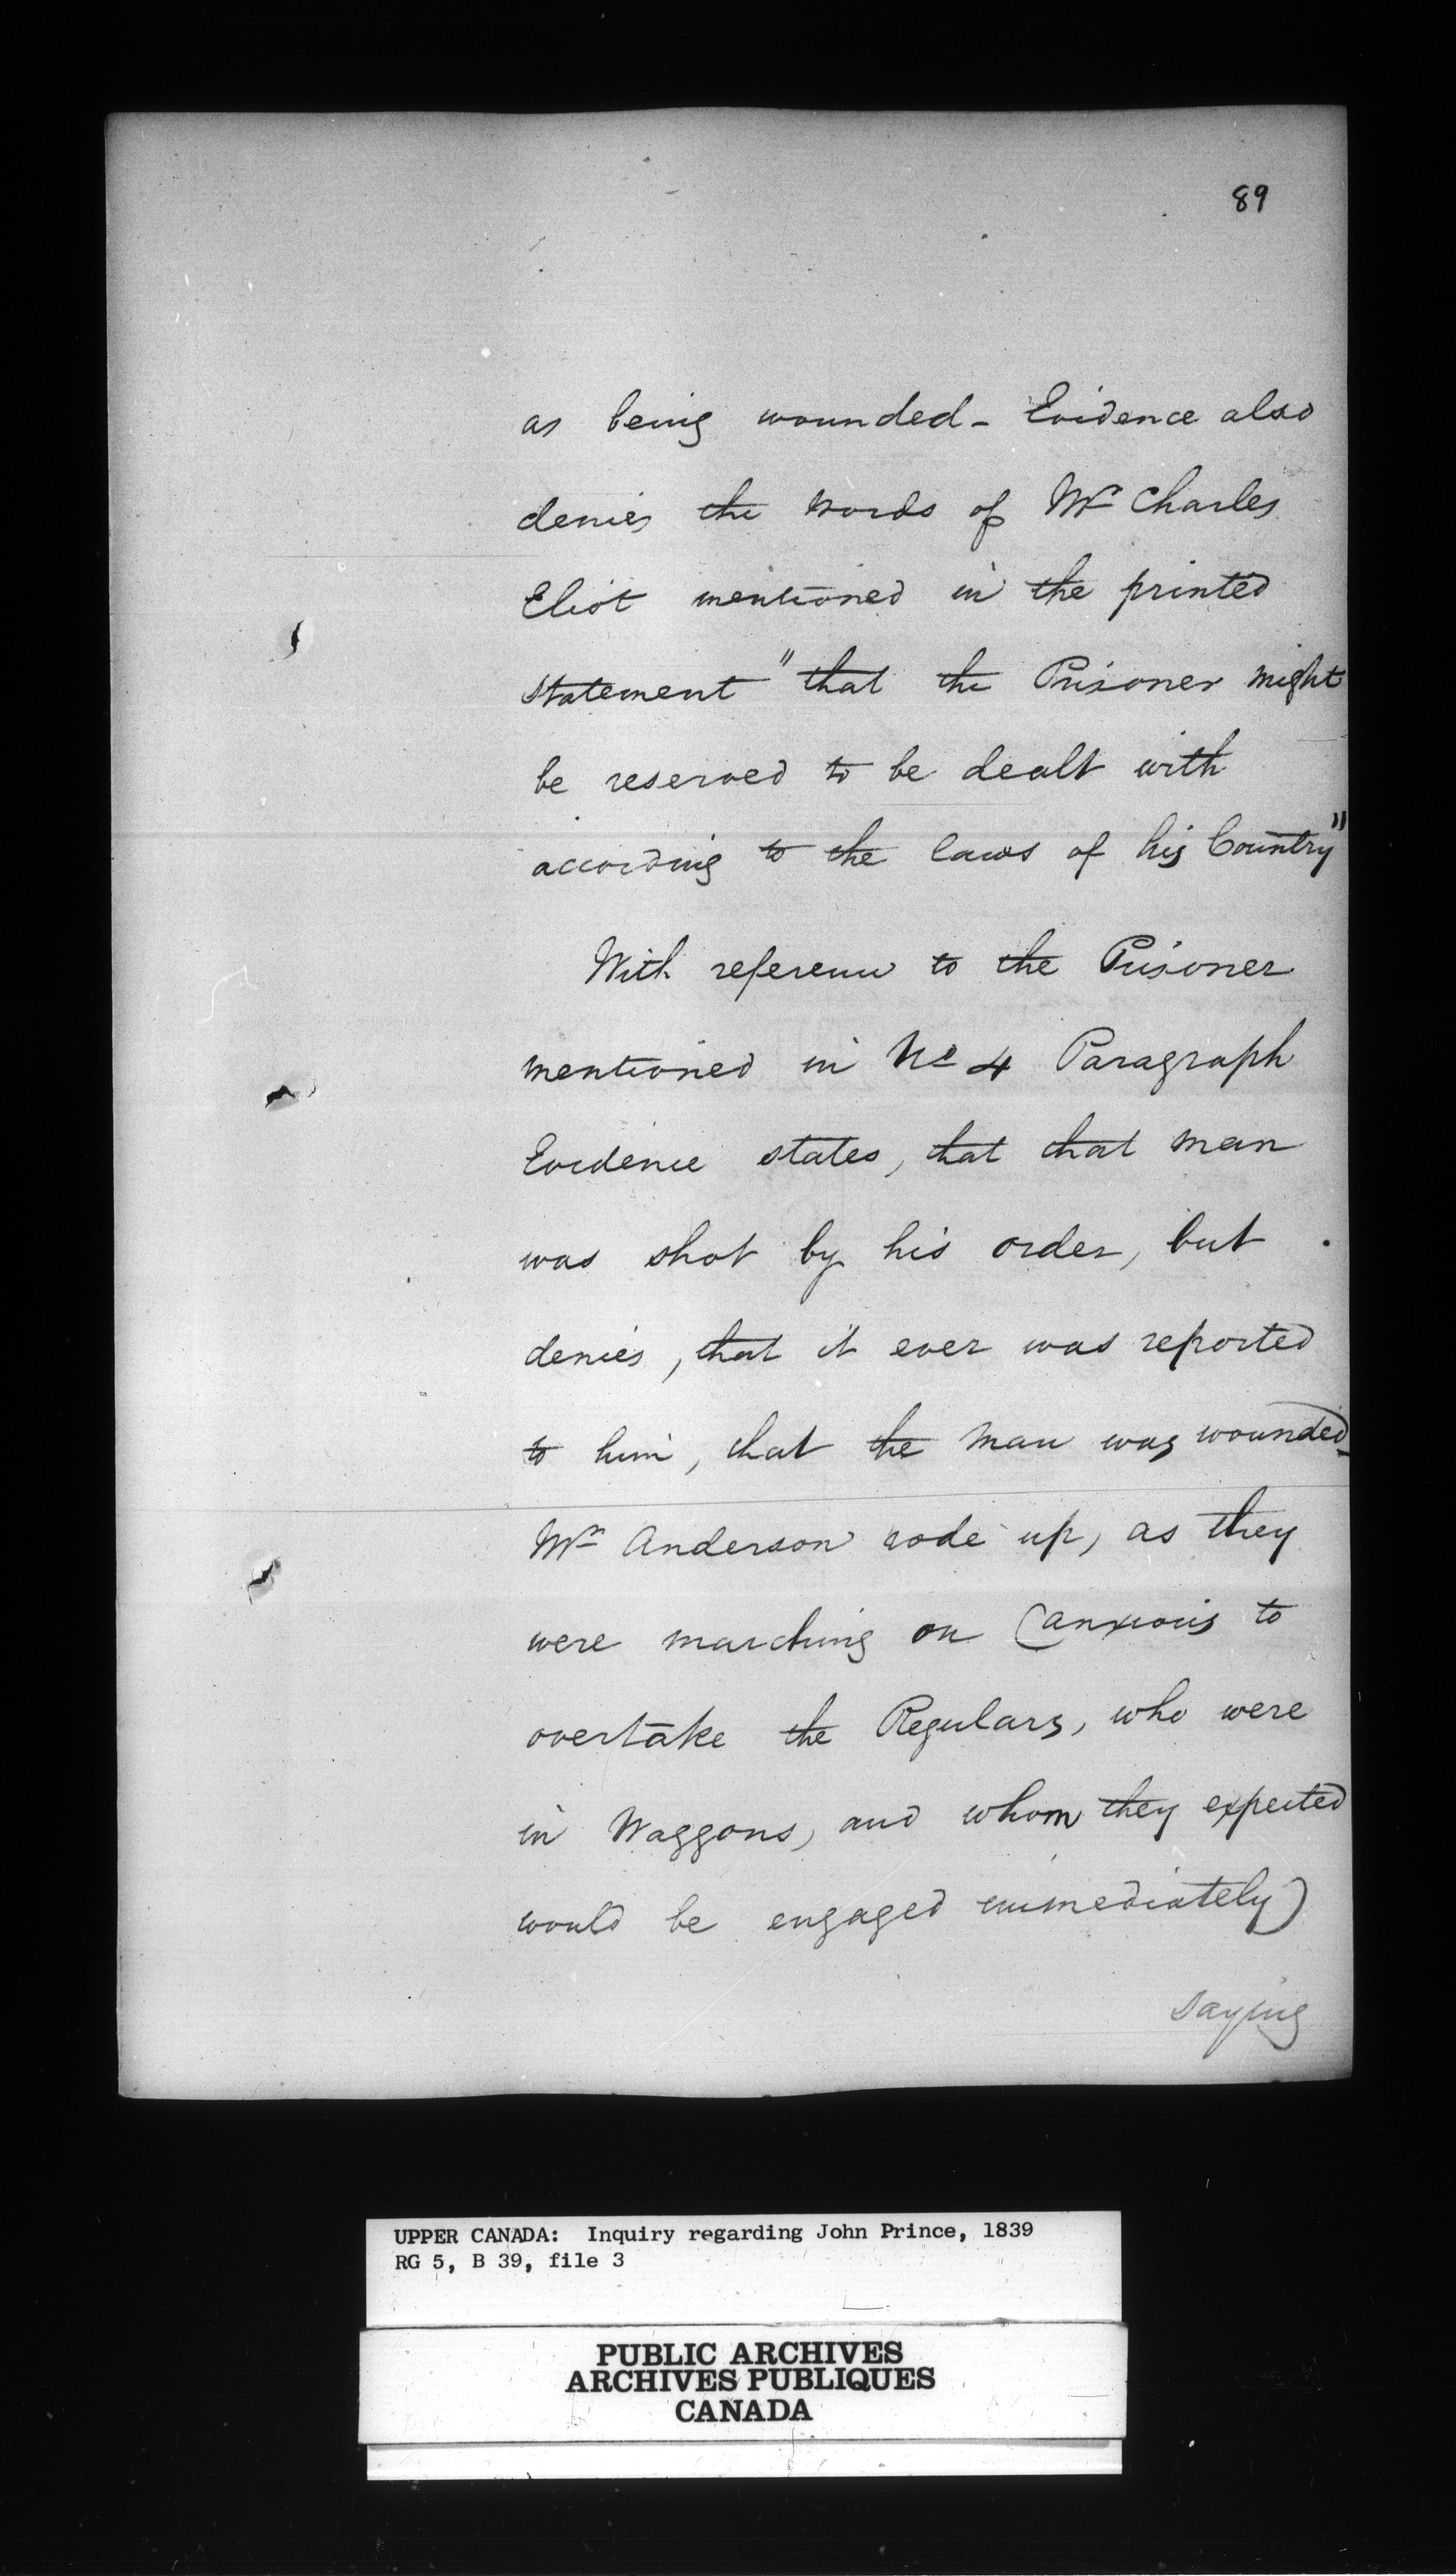 89
as being wounded - Evidence also
denies the words of Mr Charles
Eliot mentioned in the printed
statement "that the Prisoner might
be reserved to be dealt with
according to the laws of his Country"
With reference to the Prisoner
mentioned in No 4 Paragraph
Evidence states, that that man
was shot by his order, but
denies, that it ever was reported
to him, that the man was wounded -
Mr Anderson rode up, as they
were marching on (anxious to
overtake the Regulars, who were
in Waggons, and whom they expected
would be engaged immediately)
saying
UPPER CANADA: Inquiry regarding John Prince, 1839
RG 5, B 39, file 3
PUBLIC ARCHIVES
ARCHIVES PUBLIQUES
CANADA